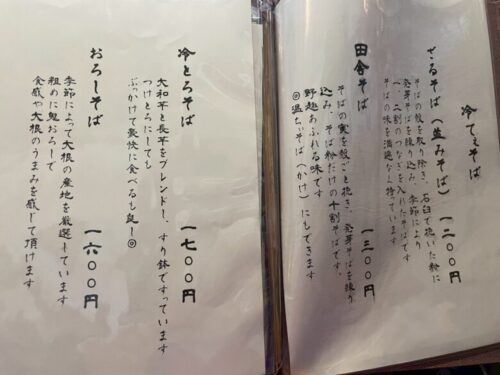 冷てぇそば
ざるそば(並みそば) 一二〇〇円
そばの殻を取り除き、石臼で挽いた粉に
発芽そばを練り込み、季節により
一、二割のつなぎを入れたそばです
そばの味を満遍なく持ています
田舎そば 一三〇〇円
そばの実を殻ごと挽き、発芽そばを練り
込み、そば粉だけの十割そばです。
野趣あふれる味です
◎温ちぃそば(かけ)にもできます
冷とろそば 一七〇〇円
大和芋と長芋をブレンドし、すり鉢ですっています
つけとろにしても
ぶっかけて豪快に食べるも良し◎
おろしそば 一六〇〇円
季節によって大根の産地を厳選しています
粗めに鬼おろして
食感や大根のうまみを感じて頂けます